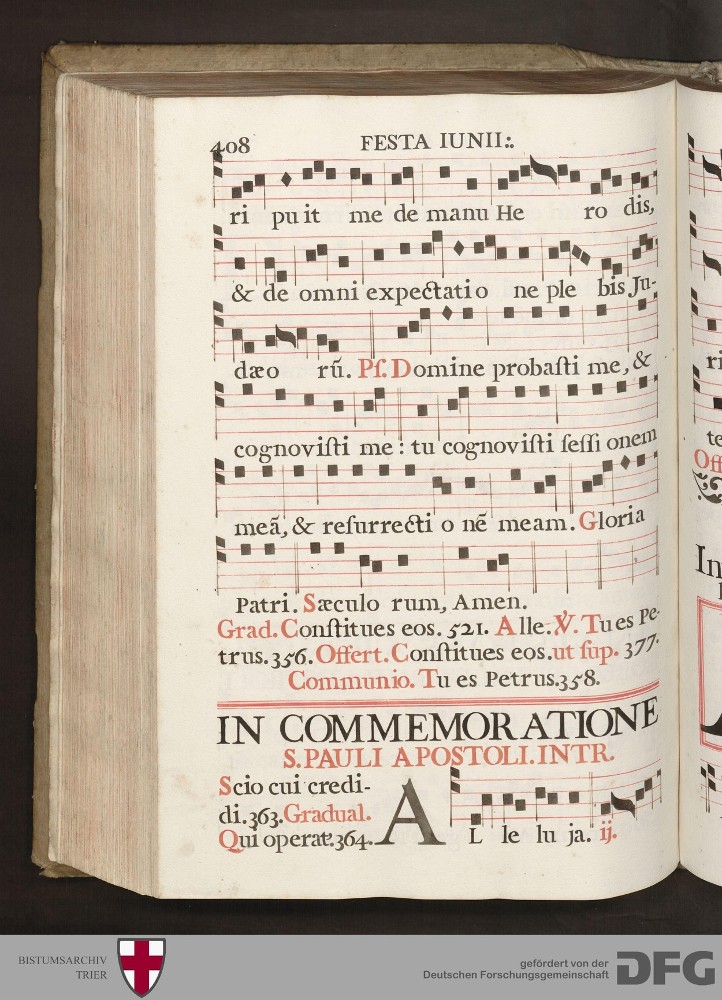 408 FESTA IUNII:.
ri pu it me de manu He ro dis,
& de omni expectatio ne ple bis Ju-
dæo rũ. Pſ. Domine probaſti me, &
cognoviſti me: tu cognoviſti ſeſſi onem
meã, & reſurrecti o nẽ meam. Gloria
Patri. Sæculo rum, Amen.
Grad. Conſtitues eos. 521. Alle. V̇. Tu es Pe-
trus. 356. Offert. Conſtitues eos. ut ſup. 377.
Communio. Tu es Petrus. 358.
IN COMMEMORATIONE
S. PAULI APOSTOLI. INTR.
Scio cui credi-
di. 363. Gradual.
Qui operat. 364.
A L le lu ja. ij.
ri
te
Off
In
BISTUMSARCHIV
TRIER
gefördert von der
Deutschen Forschungsgemeinschaft
DFG